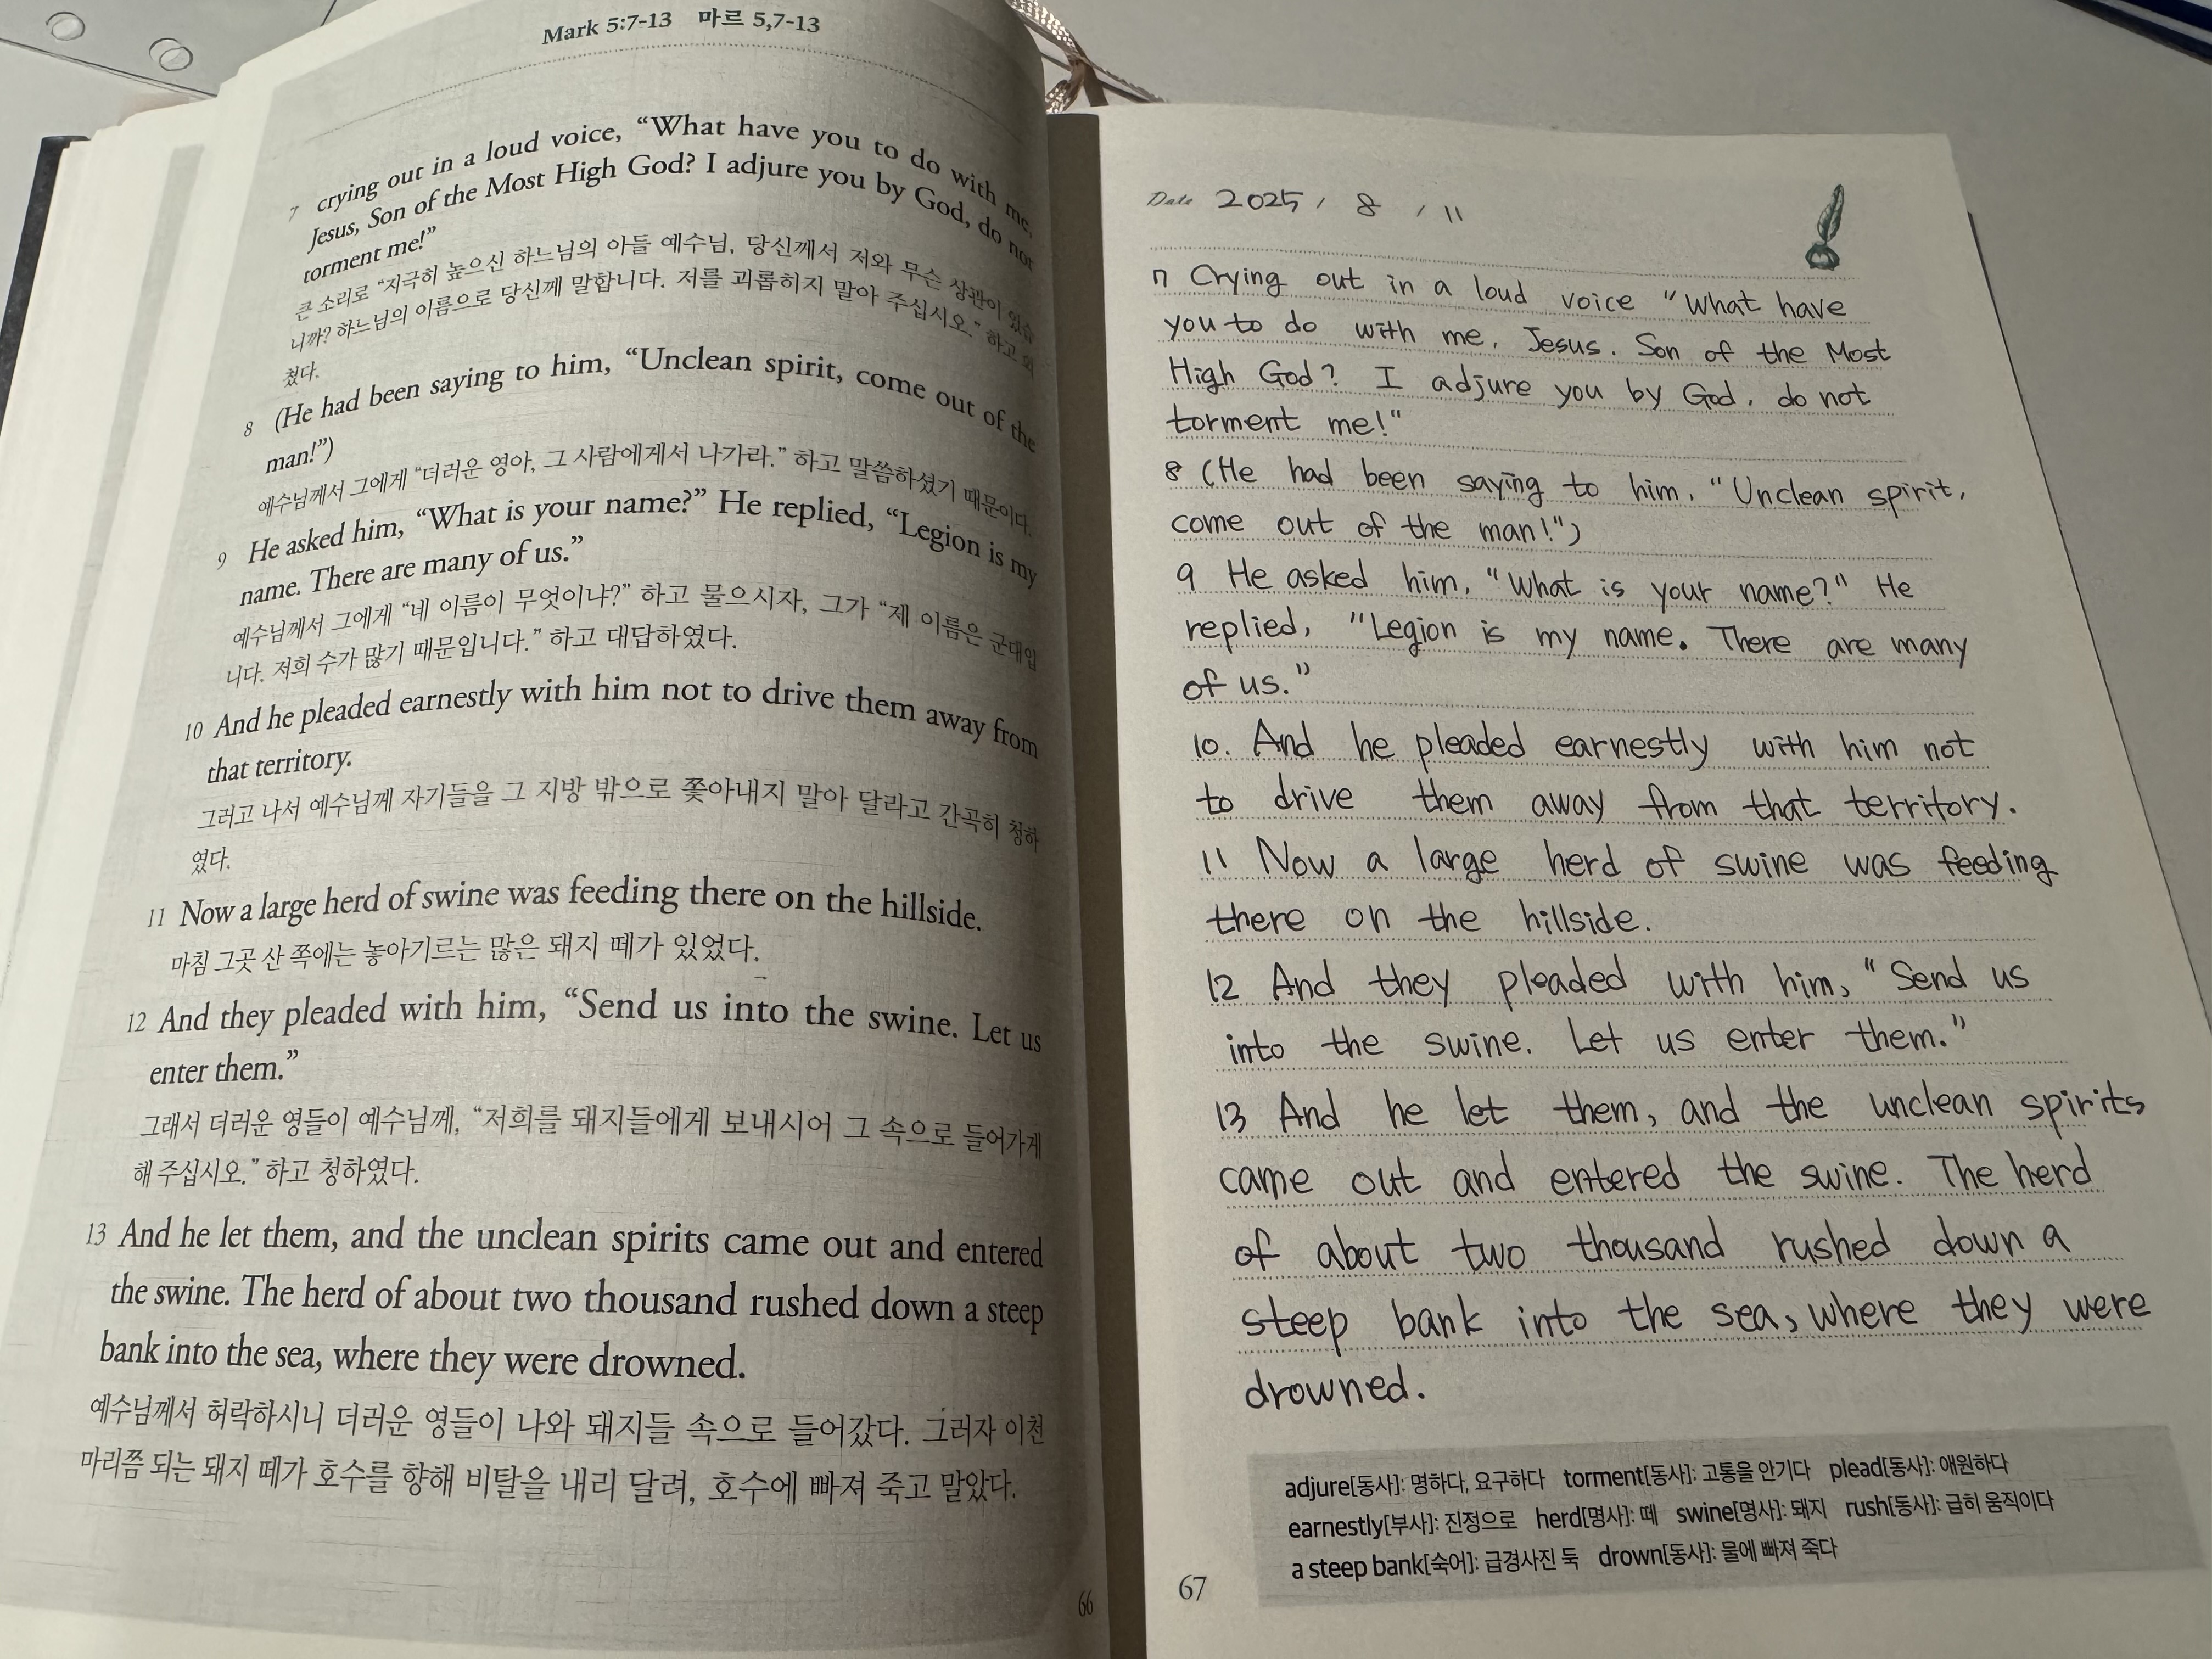 Mark 5:7-13 마르 5,7-13
7 crying out in a loud voice, “What have you to do with me,
Jesus, Son of the Most High God? I adjure you by God, do not
torment me!”
큰 소리로 “지극히 높으신 하느님의 아들 예수님, 당신께서 저와 무슨 상관이 있습
니까? 하느님의 이름으로 당신께 말합니다. 저를 괴롭히지 말아 주십시오.” 하고 외
쳤다.
8 (He had been saying to him, “Unclean spirit, come out of the
man!”)
예수님께서 그에게 “더러운 영아, 그 사람에게서 나가라.” 하고 말씀하셨기 때문이다.
9 He asked him, “What is your name?” He replied, “Legion is my
name. There are many of us.”
예수님께서 그에게 “네 이름이 무엇이냐?” 하고 물으시자, 그가 “제 이름은 군대입
니다. 저희 수가 많기 때문입니다.” 하고 대답하였다.
10 And he pleaded earnestly with him not to drive them away from
that territory.
그러고 나서 예수님께 자기들을 그 지방 밖으로 쫓아내지 말아 달라고 간곡히 청하
였다.
11 Now a large herd of swine was feeding there on the hillside.
마침 그곳 산 쪽에는 놓아기르는 많은 돼지 떼가 있었다.
12 And they pleaded with him, “Send us into the swine. Let us
enter them.”
그래서 더러운 영들이 예수님께, “저희를 돼지들에게 보내시어 그 속으로 들어가게
해 주십시오.” 하고 청하였다.
13 And he let them, and the unclean spirits came out and entered
the swine. The herd of about two thousand rushed down a steep
bank into the sea, where they were drowned.
예수님께서 허락하시니 더러운 영들이 나와 돼지들 속으로 들어갔다. 그러자 이천
마리쯤 되는 돼지 떼가 호수를 향해 비탈을 내리 달려, 호수에 빠져 죽고 말았다.
66
Date 2025 / 8 / 11
7 Crying out in a loud voice “What have
you to do with me, Jesus. Son of the Most
High God? I adjure you by God, do not
torment me!"
8 (He had been saying to him, "Unclean spirit,
come out of the man!")
9 He asked him, "What is your name?" He
replied, "Legion is my name. There are many
of us."
10. And he pleaded earnestly with him not
to drive them away from that territory.
11 Now a large herd of swine was feeding
there on the hillside.
12 And they pleaded with him, "Send us
into the swine. Let us enter them."
13 And he let them, and the unclean spirits
came out and entered the swine. The herd
of about two thousand rushed down a
steep bank into the sea, where they were
drowned.
adjure[동사]: 명하다, 요구하다 torment[동사]: 고통을 안기다 plead[동사]: 애원하다
earnestly[부사]: 진정으로 herd[명사]: 떼 swine[명사]: 돼지 rush[동사]: 급히 움직이다
a steep bank[숙어]: 급경사진 둑 drown[동사]: 물에 빠져 죽다
67